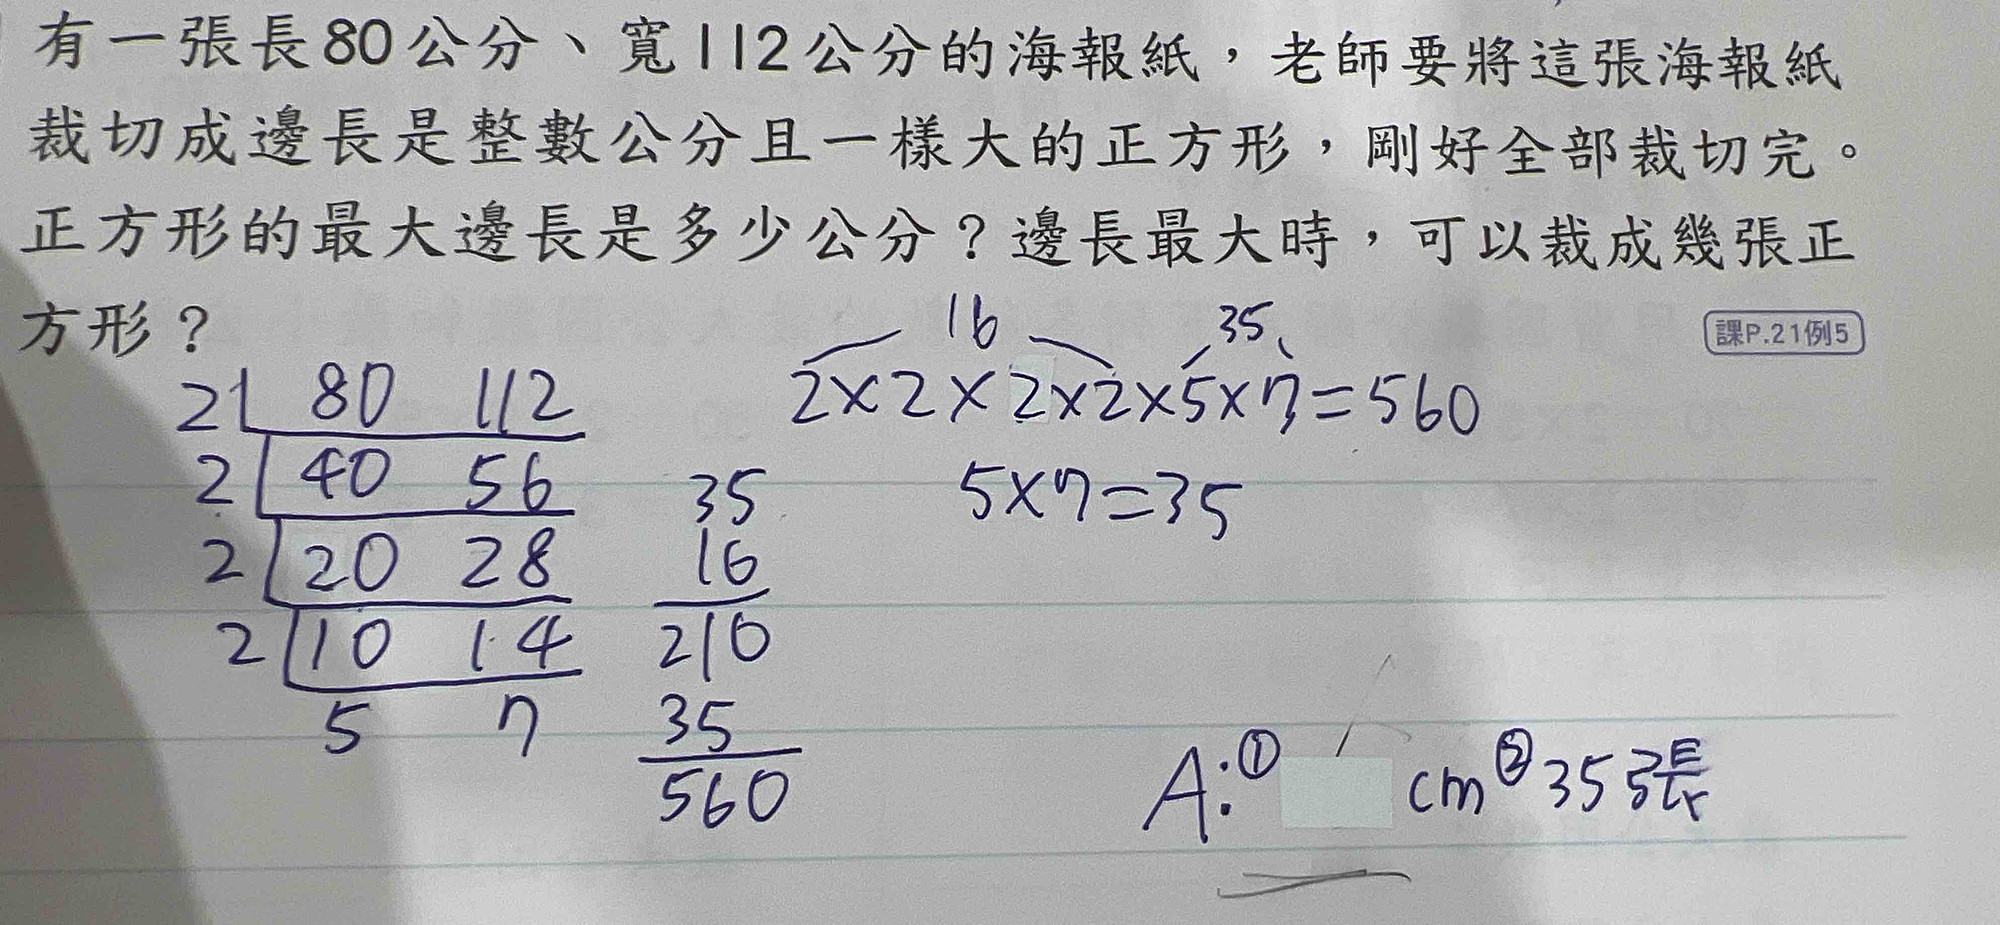 有一張長80公分、寬112公分的海報紙，老師要將這張海報紙
裁切成邊長是整數公分且一樣大的正方形，剛好全部裁切完。
正方形的最大邊長是多少公分？邊長最大時，可以裁成幾張正
方形？
課P.21例5
16 35
2×2×2×2×5×7=560
5×7=35
2 80 112
2 40 56
2 20 28
2 10 14
5 7
35
16
210
35
560
A:① cm ②35張